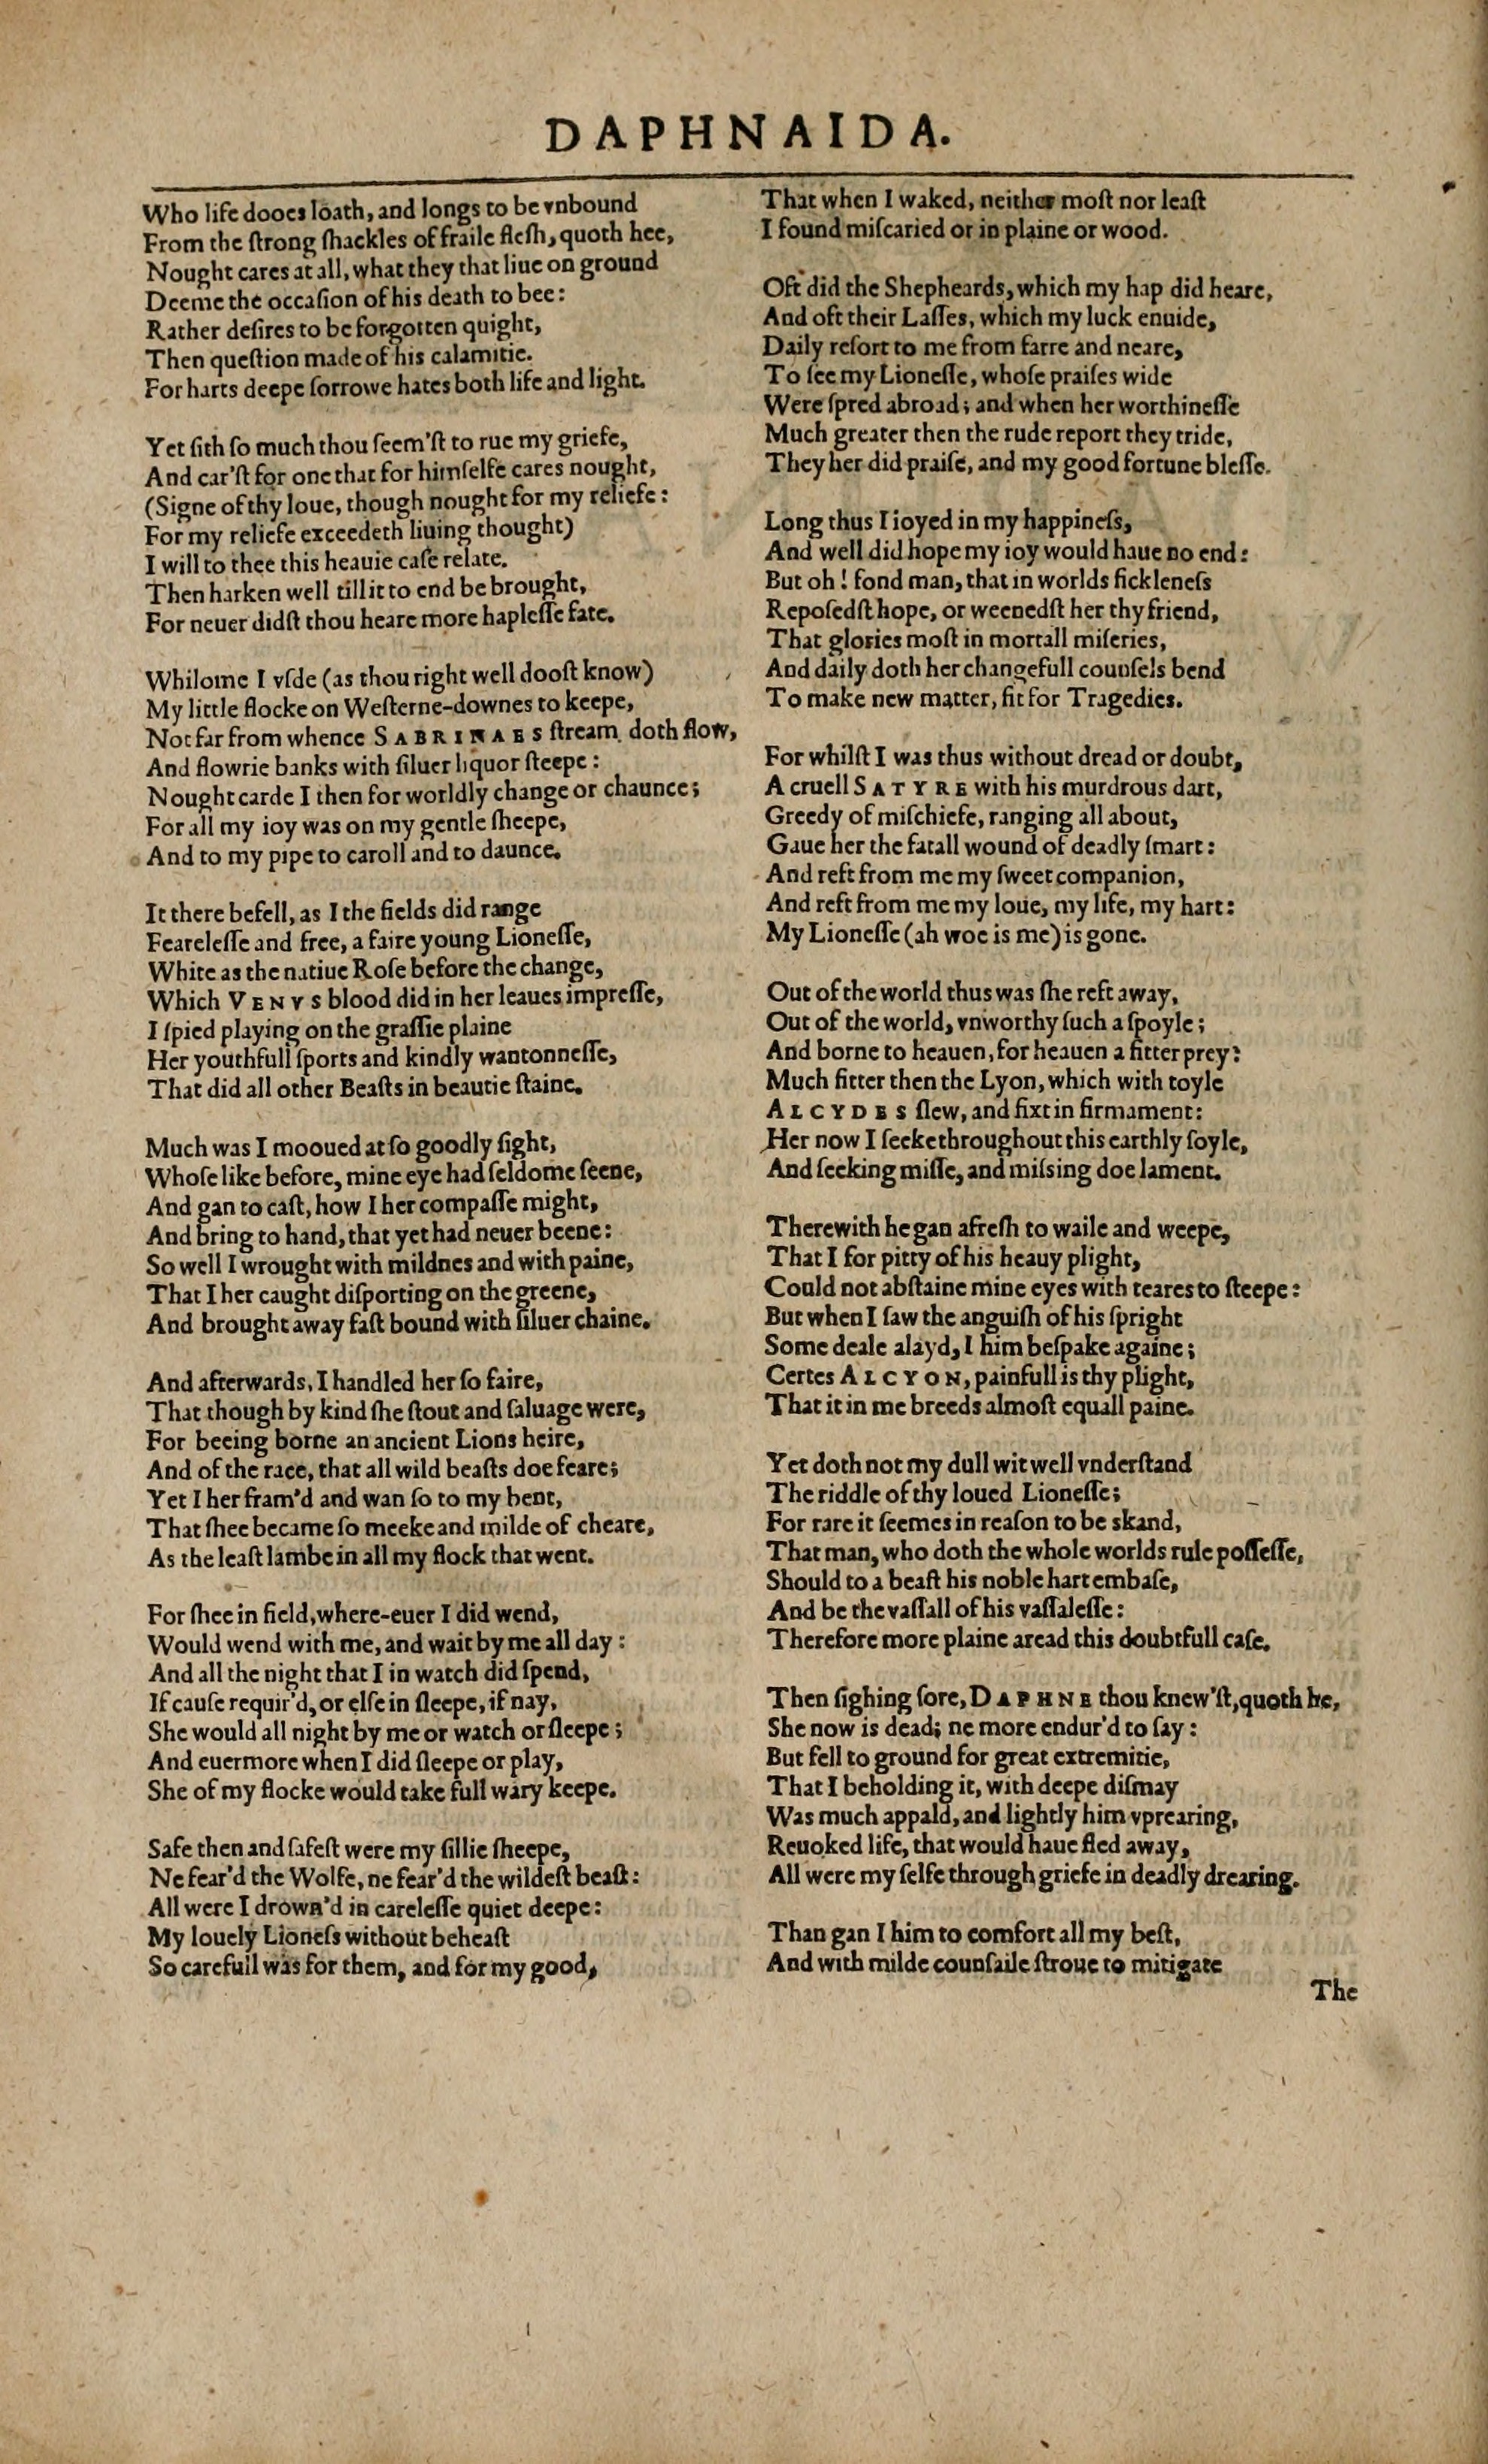 DAPHNAIDA.
Who life dooes loath, and longs to be vnbound
From the ſtrong ſhackles of fraile fleſh, quoth hee,
Nought cares at all, what they that liue on ground
Deeme the occaſion of his death to bee:
Rather deſires to be forgotten quight,
Then queſtion made of his calamitie.
For harts deepe ſorrowe hates both life and light.
Yet ſith ſo much thou ſeem'ſt to rue my griefe,
And car'ſt for one that for himſelfe cares nought,
(Signe of thy loue, though nought for my reliefe:
For my reliefe exceedeth liuing thought)
I will to thee this heauie caſe relate.
Then harken well till it to end be brought,
For neuer didſt thou heare more hapleſſe fate.
Whilome I vſde (as thou right well dooſt know)
My little flocke on Weſterne-downes to keepe,
Not far from whence SABRINAES ſtream doth flow,
And flowrie banks with ſiluer liquor ſteepe:
Nought carde I then for worldly change or chaunce;
For all my ioy was on my gentle ſheepe,
And to my pipe to caroll and to daunce.
It there befell, as I the fields did range
Feareleſſe and free, a faire young Lioneſſe,
White as the natiue Roſe before the change,
Which VENVS blood did in her leaues impreſſe,
I ſpied playing on the graſſie plaine
Her youthfull ſports and kindly wantonneſſe,
That did all other Beaſts in beautie ſtaine.
Much was I mooued at ſo goodly ſight,
Whoſe like before, mine eye had ſeldome ſeene,
And gan to caſt, how I her compaſſe might,
And bring to hand, that yet had neuer beene:
So well I wrought with mildnes and with paine,
That I her caught diſporting on the greene,
And brought away faſt bound with ſiluer chaine.
And afterwards, I handled her ſo faire,
That though by kind ſhe ſtout and ſaluage were,
For beeing borne an ancient Lions heire,
And of the race, that all wild beaſts doe feare;
Yet I her fram'd and wan ſo to my bent,
That ſhee became ſo meeke and milde of cheare,
As the leaſt lambe in all my flock that went.
For ſhee in field, where-euer I did wend,
Would wend with me, and wait by me all day:
And all the night that I in watch did ſpend,
If cauſe requir'd, or elſe in ſleepe, if nay,
She would all night by me or watch or ſleepe;
And euermore when I did ſleepe or play,
She of my flocke would take full wary keepe.
Safe then and ſafeſt were my ſillie ſheepe,
Ne fear'd the Wolfe, ne fear'd the wildeſt beaſt:
All were I drown'd in careleſſe quiet deepe:
My louely Lioneſs without beheaſt
So carefull was for them, and for my good,
That when I waked, neither moſt nor leaſt
I found miſcaried or in plaine or wood.
Oft did the Shepheards, which my hap did heare,
And oft their Laſſes, which my luck enuide,
Daily reſort to me from farre and neare,
To ſee my Lioneſſe, whoſe praiſes wide
Were ſpred abroad; and when her worthineſſe
Much greater then the rude report they tride,
They her did praiſe, and my good fortune bleſſe.
Long thus I ioyed in my happineſs,
And well did hope my ioy would haue no end:
But oh! fond man, that in worlds fickleneſs
Repoſedſt hope, or weenedſt her thy friend,
That glories moſt in mortall miſeries,
And daily doth her changefull counſels bend
To make new matter, fit for Tragedies.
For whilſt I was thus without dread or doubt,
A cruell SATYRE with his murdrous dart,
Greedy of miſchiefe, ranging all about,
Gaue her the fatall wound of deadly ſmart:
And reft from me my ſweet companion,
And reft from me my loue, my life, my hart:
My Lioneſſe (ah woe is me) is gone.
Out of the world thus was ſhe reft away,
Out of the world, vnworthy ſuch a ſpoyle;
And borne to heauen, for heauen a fitter prey:
Much fitter then the Lyon, which with toyle
ALCYDES ſlew, and fixt in firmament:
Her now I ſeeke throughout this earthly ſoyle,
And ſeeking miſſe, and miſsing doe lament.
Therewith he gan afreſh to waile and weepe,
That I for pitty of his heauy plight,
Could not abſtaine mine eyes with teares to ſteepe:
But when I ſaw the anguiſh of his ſpright
Some deale alayd, I him beſpake againe;
Certes ALCYON, painfull is thy plight,
That it in me breeds almoſt equall paine.
Yet doth not my dull wit well vnderſtand
The riddle of thy loued Lioneſſe;
For rare it ſeemes in reaſon to be skand,
That man, who doth the whole worlds rule poſſeſſe,
Should to a beaſt his noble hart embaſe,
And be the vaſſall of his vaſſaleſſe:
Therefore more plaine aread this doubtfull caſe.
Then ſighing ſore, DAPHNE thou knew'ſt, quoth he,
She now is dead; ne more endur'd to ſay:
But fell to ground for great extremitie,
That I beholding it, with deepe diſmay
Was much appald, and lightly him vprearing,
Reuoked life, that would haue fled away,
All were my ſelfe through griefe in deadly drearing.
Than gan I him to comfort all my beſt,
And with milde counſaile ſtroue to mitigate
The